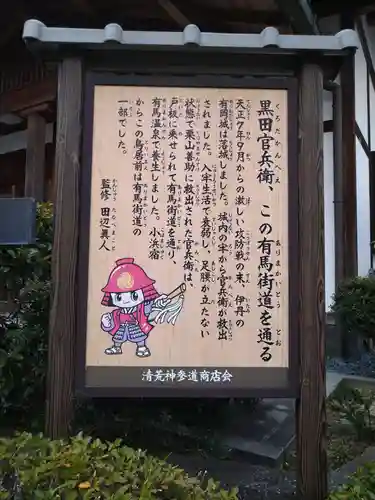 黒田官兵衛、この有馬街道を通る
くろだかんべえ
ありまかいどう
とお
天正7年9月からの激しい攻防戦の末、伊丹の
有岡城は落城しました。城内の牢から官兵衛が救出
されました。入牢生活で衰弱し、足腰が立たない
状態で栗山善助に救出された官兵衛は、
戸板に乗せられて有馬街道を通り、
有馬温泉で養生しました。小浜宿
からこの鳥居前は有馬街道の
一部でした。
監修 田辺眞人
かんしゅう たなべまこと
清荒神参道商店会